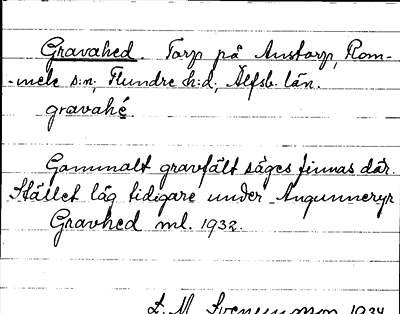 Gravahed. Torp på Anstorp, Rom-
-mele s:n, Flundre h:d, Älfsb. län.
gravahé.
Gammalt gravfält säges finnas där.
Stället låg tidigare under Angunneryr
Gravhed ml. 1932.
L. M. Svenungsson 1934